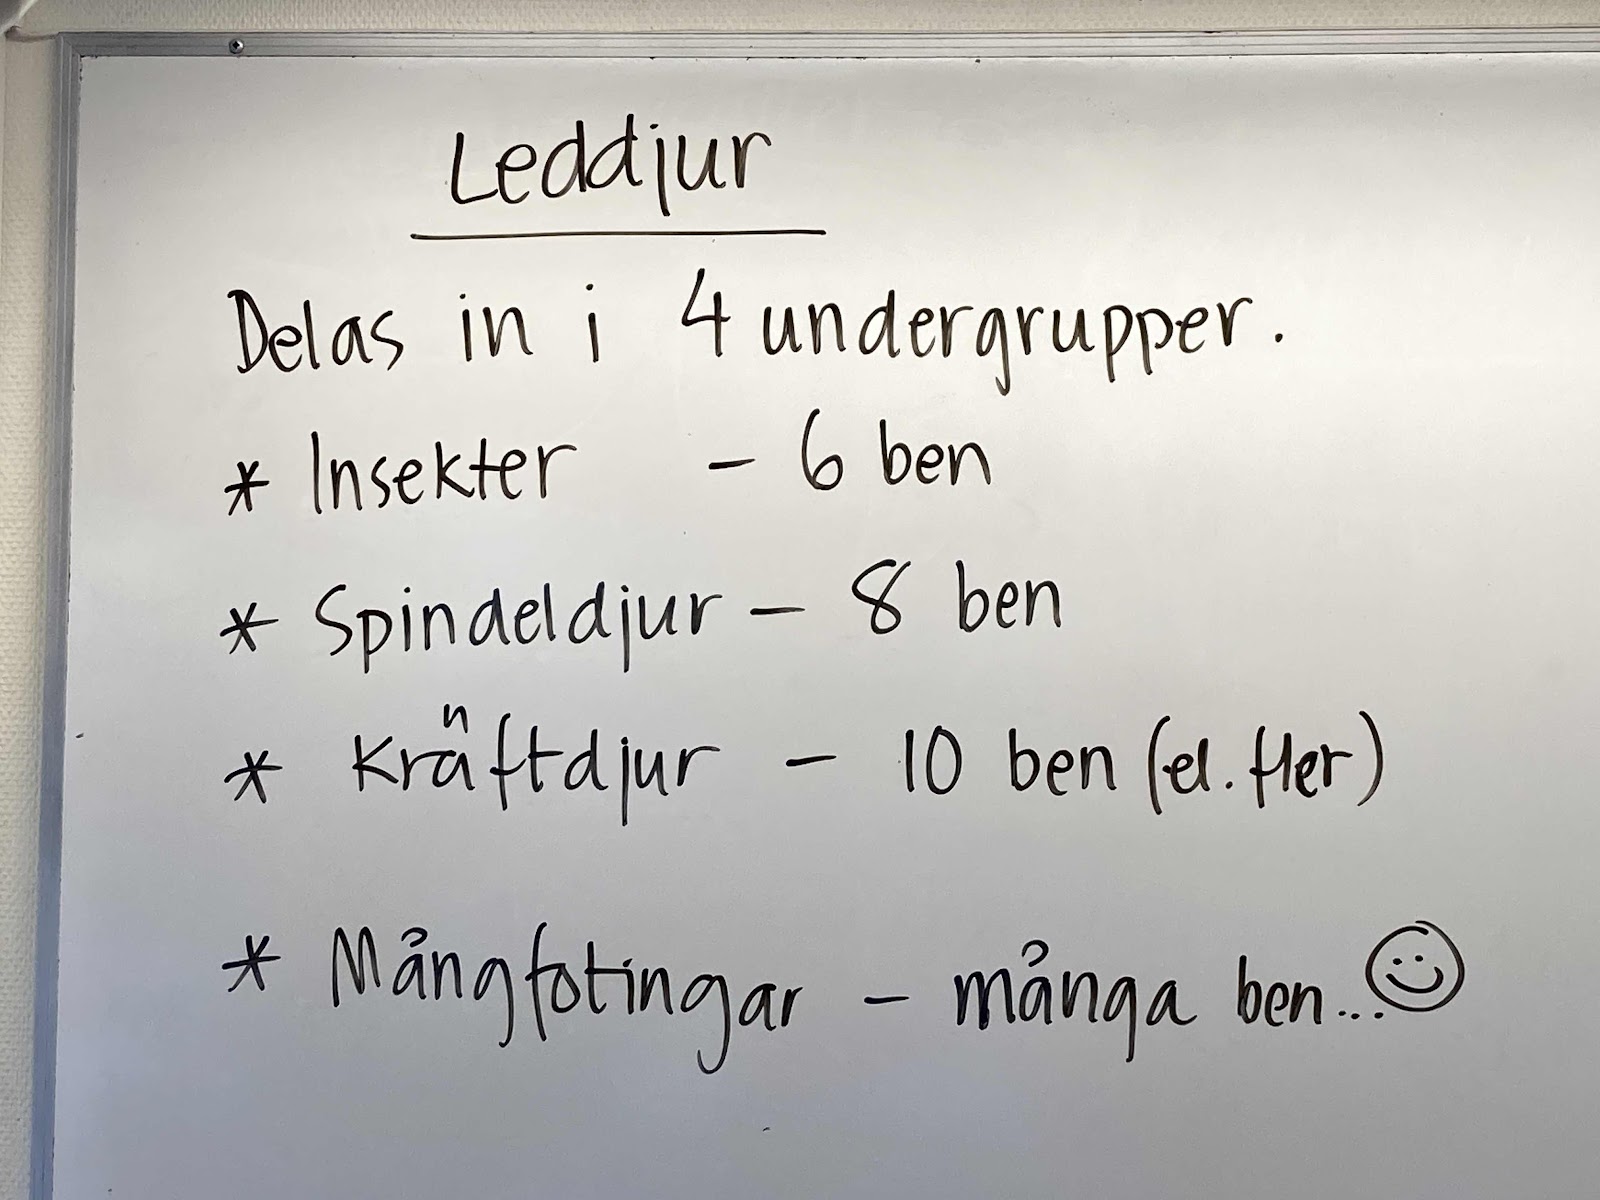 Leddjur
Delas in i 4 undergrupper.
* Insekter - 6 ben
* Spindeldjur - 8 ben
* Kräftdjur - 10 ben (el. fler)
* Mångfotingar - många ben... ☺